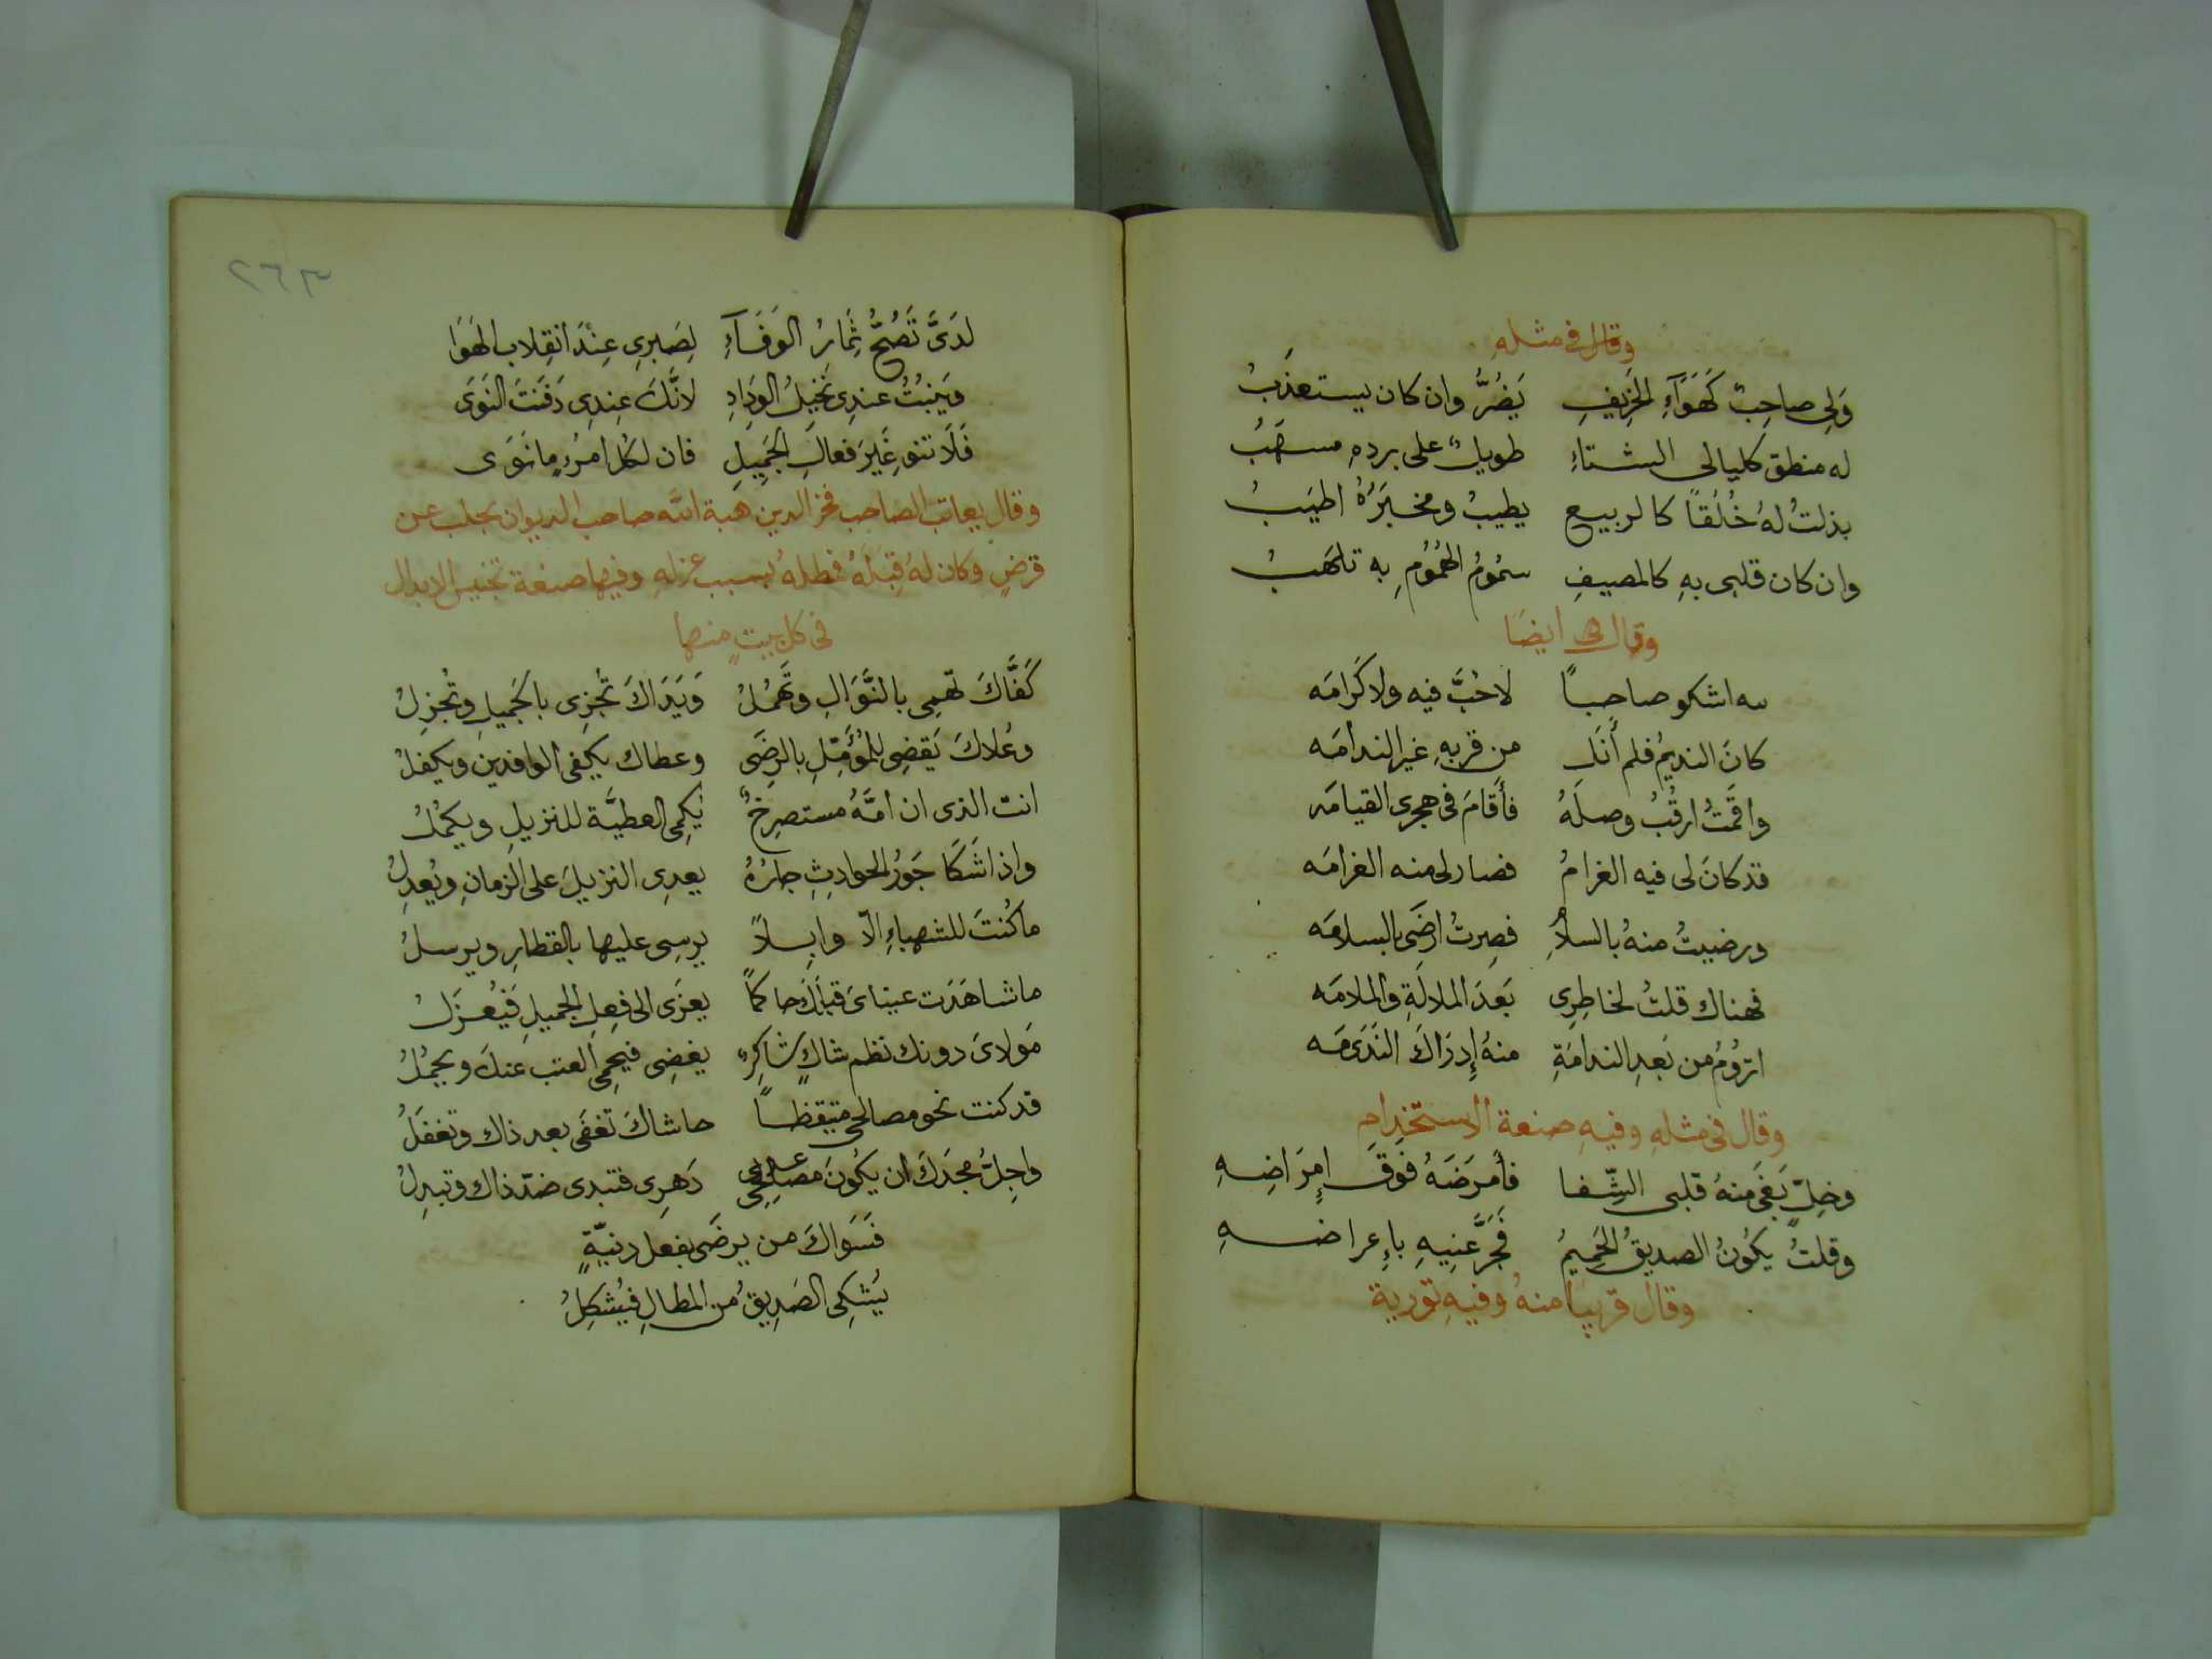 وقال في مثله
وَلِي صاحِبٌ كَهَوَآءِ الخَرِيفِ يَضُرُّ وان كان يستعذَبُ
له منطق كليالى الشتاءِ طويلٌ على بردهِ مسهَبُ
بذلتُ لهُ خُلُقاً كالربيع يطيبُ ومخبَرُهُ اطيَبُ
وان كان قلبى بهِ كالمصيفِ سمُومُ الهُمُومِ به تلهَبُ
وقال ايضًا
لله اشكو صاحباً لاحُبَّ فيه ولا كَرامَه
كانَ النديمُ فلم أنَل من قربهِ غير الندامَه
واقَمتُ ارقُبُ وصلَهُ فأقامَ فى هجرى القيامَه
قد كانَ لى فيه الغرامُ فصار لى منه الغرامَه
ورضيتُ منهُ بالسلاَمِ فصِرتُ ارضَى بالسلامَه
فهناك قلتُ لخاطِرِى بَعدَ الملالَةِ والملامَه
ارَُومُ من بَعدِ الندامَةِ منهُ إِدرَاكَ النَدَى مَه
وقال فى مثلهِ وفيهِ صنعة الاستخدامِ
وخِلٍّ بَغَى منهُ قلبى الشِّفا فأمرَضَهُ فوقَ امِرَاضِهِ
وقلتُ يكُونُ الصديقُ الحَمِيمُ فجَرَّعَنِيهِ بإِعراضهِ
وقال قريبًا منهُ وفيهِ تورية
٢٦٣
لدَىَّ تَصُحُّ ثِمارُ الوَفَآءِ لِصَبرِى عِنْدَ انقِلاب الهَوَا
وَيَنبُتُ عندِى نَخِيلُ الودَادِ لانَّكَ عِندِى دَفَنتَ النَوَى
فَلَا تنوِ غَيرَ فعالِ الجَمِيلِ فان لكل امرُءٍ مانَوَى
وقال يعاتب الصاحب فخر الدين هبة الله صاحب الديوان بحلب عن
قرضٍ وكان له قِبَلَهُ فمطلهُ بسبب عزلهِ وفيها صنعة تجنيس الابدال
فى كل بيتٍ منها
كَفَّاكَ تهمِى بالنَّوَالِ وتَهمُلُ وَيَدَاكَ تُجزِى بالجَميلِ وتُجزِلُ
وعُلاكَ يَقضِى للمُؤَمِّلِ بالرِضَى وعطاك يكفى الوافدين ويكفلُ
انت الذى ان امَّهُ مستصرِخٌ يُكمِى العطيَّة للنزيلِ ويكمُلُ
واذا شَكَا جَورَ الحوادِثِ جارُهُ يعدِى النزيلَ على الزمانِ ويُعدِلُ
ماكُنتَ للشهباءِ الاّ وابِلاً يرسِى عليها بالقطارِ ويرسلُ
ماشاهَدَت عيناىَ قبلَكَ حاكماً يعزَى الى فِعلِ الجميلِ فَيُعزَلُ
مَولاىَ دونك نظم شاكٍ شاكِرٍ يغضِى فيحمِى العتب عنكَ ويجمُلُ
قد كنت نحو مصالحى متيقظاً حاشاكَ تغفَى بعد ذاك وتغفَلُ
واجِلُّ مجدَكَ ان يكُونَ مصلحى على دَهرِى فتبدى ضدّ ذاك وتبدِلُ
فَسَوَاكَ من يرضَى بفعل دنيّةٍ
يُشكِى الصَدِيقَ من المطالِ فيُشكِلُ